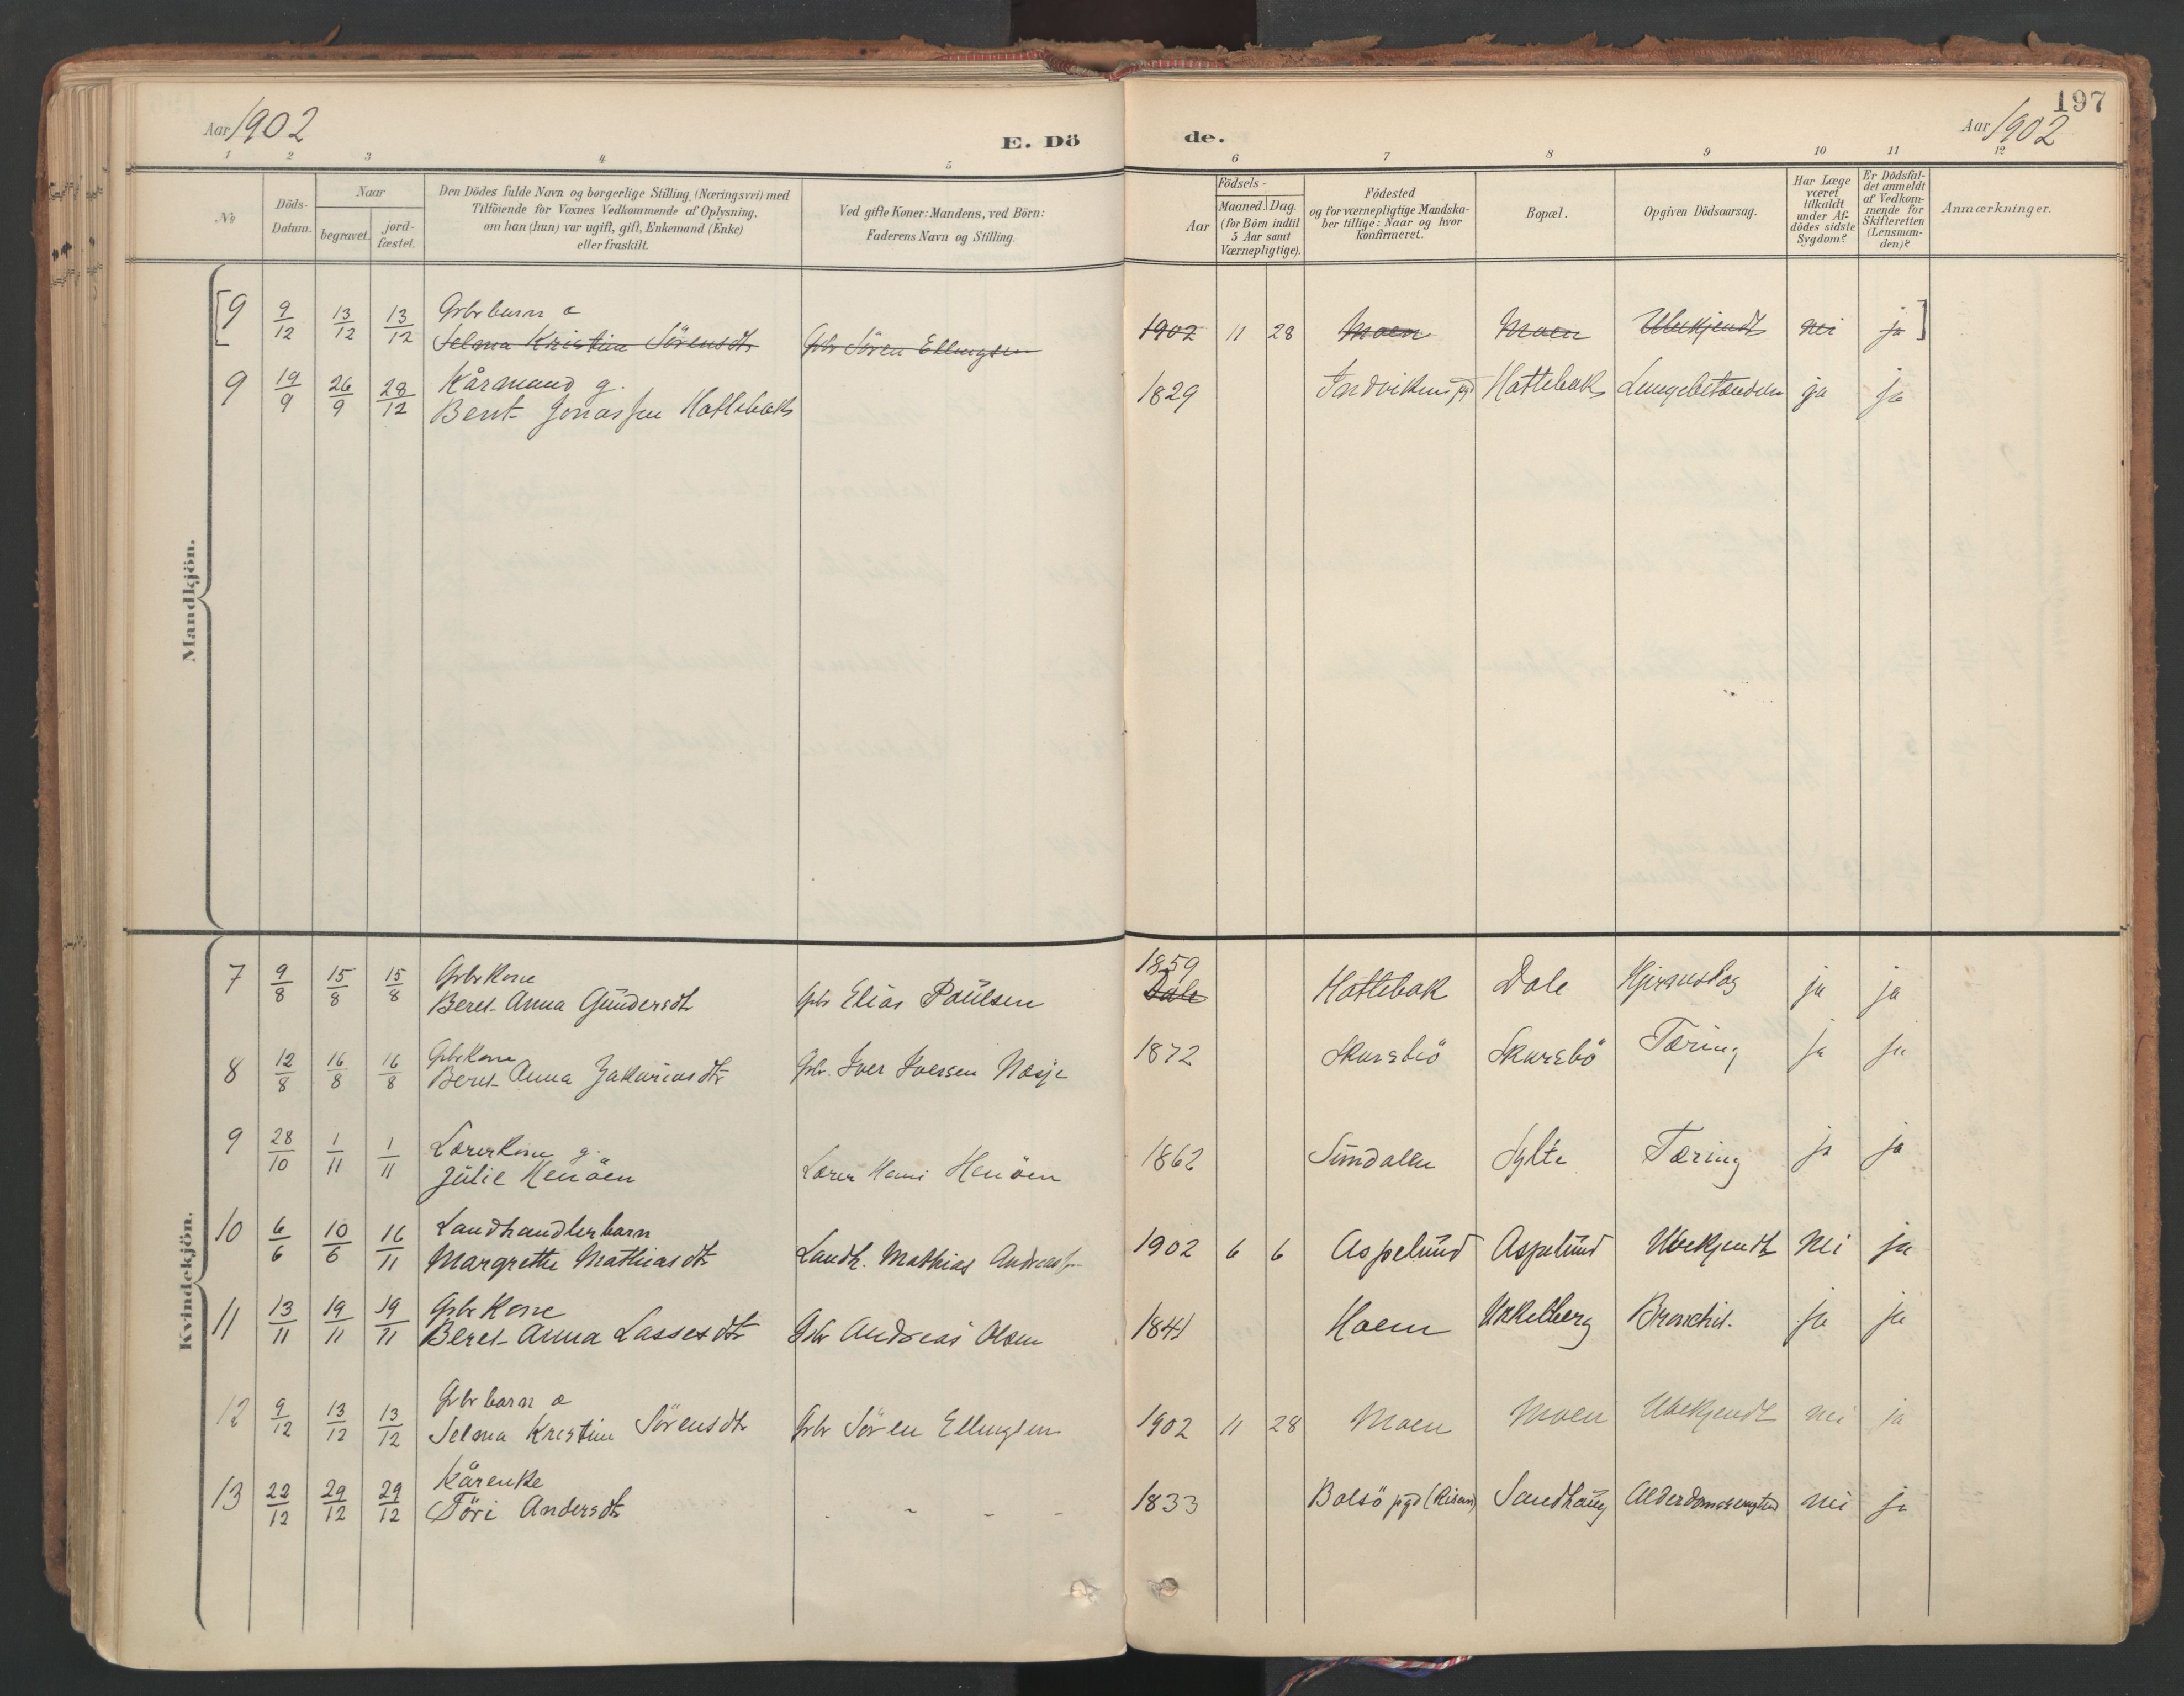 197
Aar 1902
E. Dö
de.
Aar 1902
1 2 3 4 5 6 7 8 9 10 11 12
No
Döds-Datum.
Naar
begravet.
jord-fæstet.
Den Dödes fulde Navn og borgerlige Stilling (Næringsvei) med
Tilföiende for Voxnes Vedkommende af Oplysning,
om han (hun) var ugift, gift, Enkemand (Enke)
eller fraskilt.
Ved gifte Koner: Mandens, ved Börn:
Faderens Navn og Stilling.
Födsels-
Aar
Maaned. Dag.
(for Börn indtil
5 Aar samt
Værnepligtige).
Födested
og for værnepligtige Mandska-
ber tillige: Naar og hvor
konfirmeret.
Bopæl.
Opgiven Dödsaarsag.
Har Læge
været
tilkaldt
under Af-
dödes sidste
Sygdom?
Er Dödsfal-
det anmeldt
af Vedkom-
mende for
Skifteretten
(Lensman-
den)?
Anmærkninger.
Mandkjön.
[9 9/12 13/12 13/12 Gbr barn æ
Selma Kristine Sörensdt. Gbr Sören Ellingsen 1902 11 28 Moen Moen Ubekjendt nei ja]
9 19/9 26/9 28/12 Kårmand g.
Bent Jonassen Hattebak 1829 Indvikens pgd Hattebak Lungebetændelse ja ja
Kvindekjön.
7 9/8 15/8 15/8 Gbr Kone
Beret Anna Gundersdt. Gbr Elias Paulsen 1859 Dale Hattebak Dale Hjerneslag ja ja
8 12/8 16/8 16/8 Gbr Kone
Beret Anna Zakariasdtr Gbr. Iver Iversen Næsje 1872 Skarsbö Skarsbö Tæring ja ja
9 28/10 1/11 1/11 Lærerkone g.
Julie Henöen Lærer Hans Henöen 1862 Sundalen Sylte Tæring ja ja
10 6/6 10/6 16/11 Landhandlerbarn
Margrethe Mathiasdtr Landh. Mathias Andreassen 1902 6 6 Aspelund Aspelund Ubekjendt Nei ja
11 13/11 19/11 19/11 Gbr Kone
Beret Anna Lassesdtr Gbr Andreas Olsen 1841 Hoem Ukkelberg Bronchit. ja ja
12 9/12 13/12 13/12 Gbr barn æ
Selma Kristine Sörensdtr Gbr Sören Ellingsen 1902 11 28 Moen Moen Ubekjendt nei ja
13 22/12 29/12 29/12 Kårenke
Töri Andersdt. - - - - 1833 Bolsö pgd (Risan) Sandhaug Alderdomssvaghed nei ja